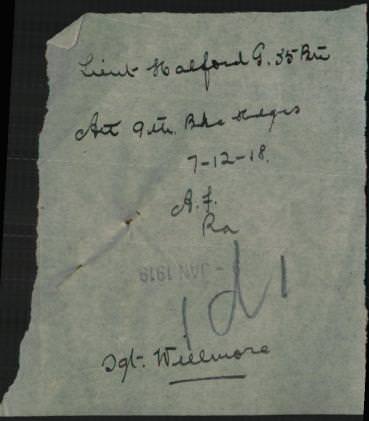 Lieut Halford G. 35 Btn
Att 9th. Bde Hdqrs
7-12-18.
A.F.
Ra
- JAN 1919
Sgt. Willmore